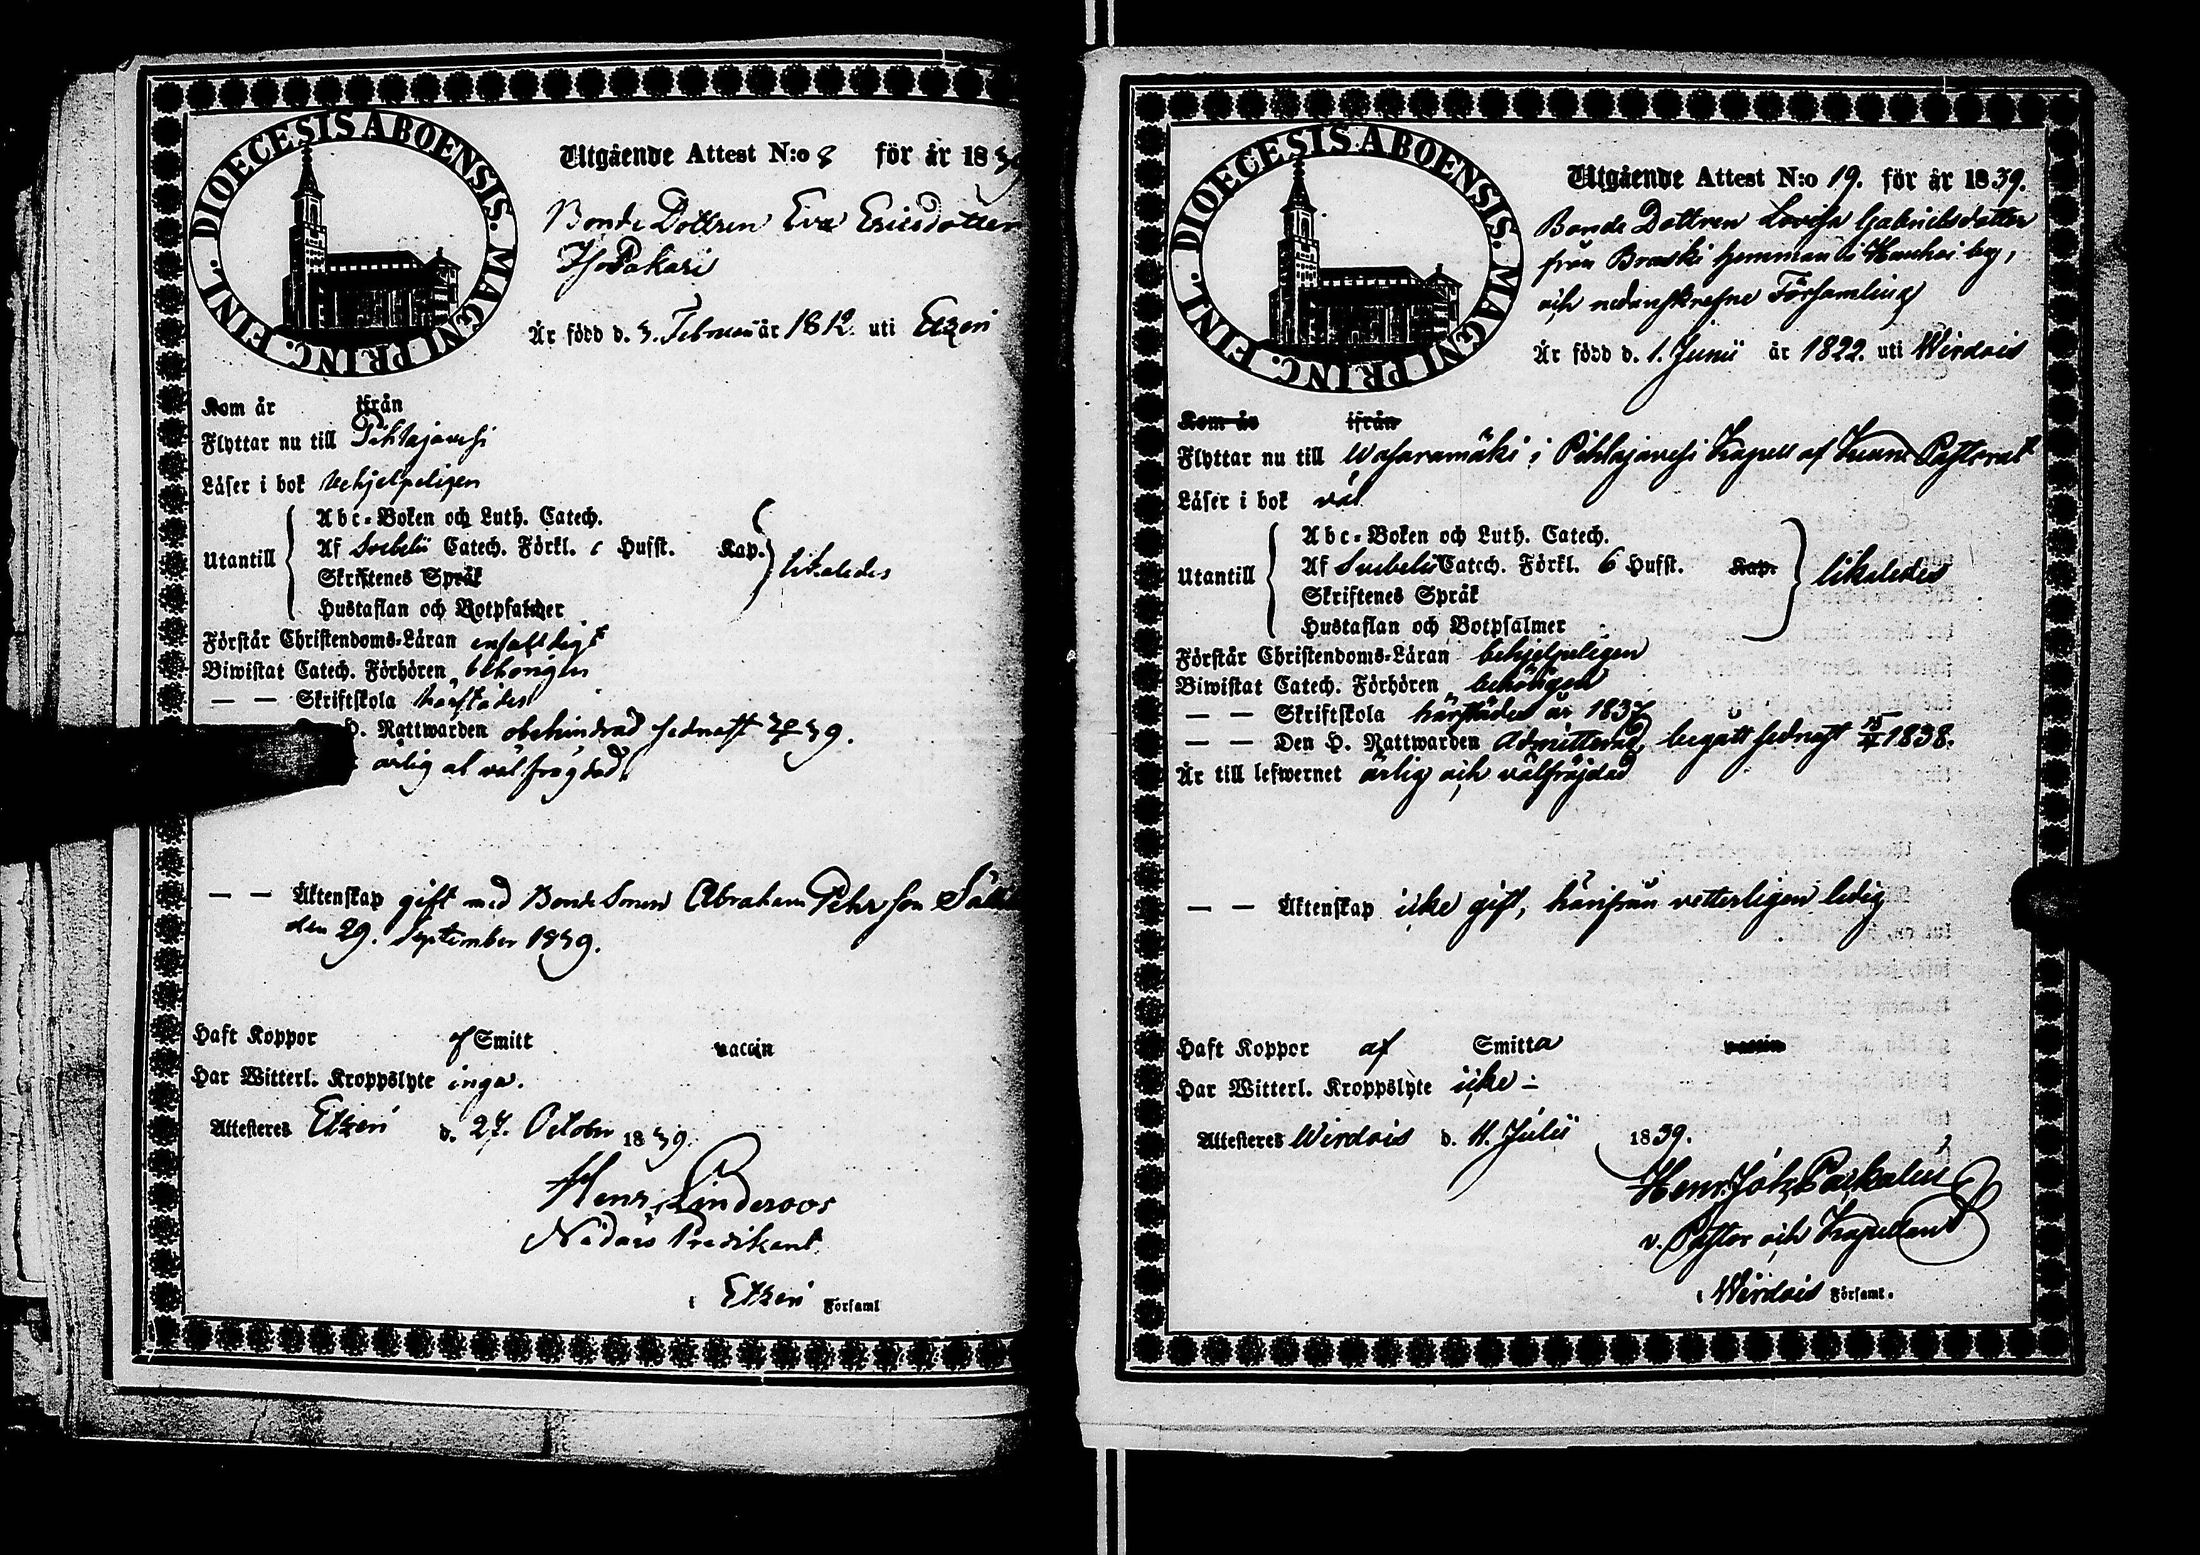 DIOECESIS ABOENSIS. MAGNI PRINC. FINL.
Utgående Attest N:o 8 för år 1839
Bonde Dottren Eva Ericsdotter
Iso Pakari
Är född d. 3. Februari år 1812. uti Etzeri
Kom år ifrån
Flyttar nu till Pihlajavesi
Läser i bok behjelpeligen
Utantill
Abc-Boken och Luth. Catech.
Af Svebelii Catech. Förkl. Hufst. Kap.
Skriftenes Språk
Hustaflan och Botpsalmer
likaledes
Förstår Christendoms-Läran enfaldigt
Biwistat Catech. Förhören behörigen
— — Skriftskola härstädes
H. Nattwarden obehindrad sednast 39.
ärlig och välfrägdad.
— — Äktenskap gift med Bonde Sonen Abraham Pehrsson
den 29. September 1839.
Haft Koppor af Smitt vaccin
Har Witterl. Kroppslyte inga.
Attesteres Etzeri d. 27. October 1839.
Henr. Linderoos
Nådårs Predikant
i Etzeri Församl
DIOECESIS ABOENSIS. MAGNI PRINC. FINL.
Utgående Attest N:o 19. för år 1839.
Bonde Dottren Lovisa Gabrielsdotter
från Braski hemman i by,
och nedanskrefne Församling
Är född d. 1. Junii år 1822. uti Wirdois
Kom år ifrån
Flyttar nu till Wasaramäki i Pihlajavesi Kapell af Pastorat
Läser i bok väl
Utantill
Abc-Boken och Luth. Catech.
Af Svebelii Catech. Förkl. 6 Hufst. Kap.
Skriftenes Språk
Hustaflan och Botpsalmer
likaledes
Förstår Christendoms-Läran behjelpeligen
Biwistat Catech. Förhören behörigen
— — Skriftskola härstädes år 1837
— — Den H. Nattwarden Admitterad, begått sednast 1838.
Är till lefwernet ärlig och välfräjdad
— — Äktenskap icke gift, härifrån vetterligen ledig
Haft Koppor af Smitta vaccin
Har Witterl. Kroppslyte icke –
Attesteres Wirdois d. 11. Julii 1839.
Henr. Joh.
v. Pastor och Kapellan
i Wirdois Församl.